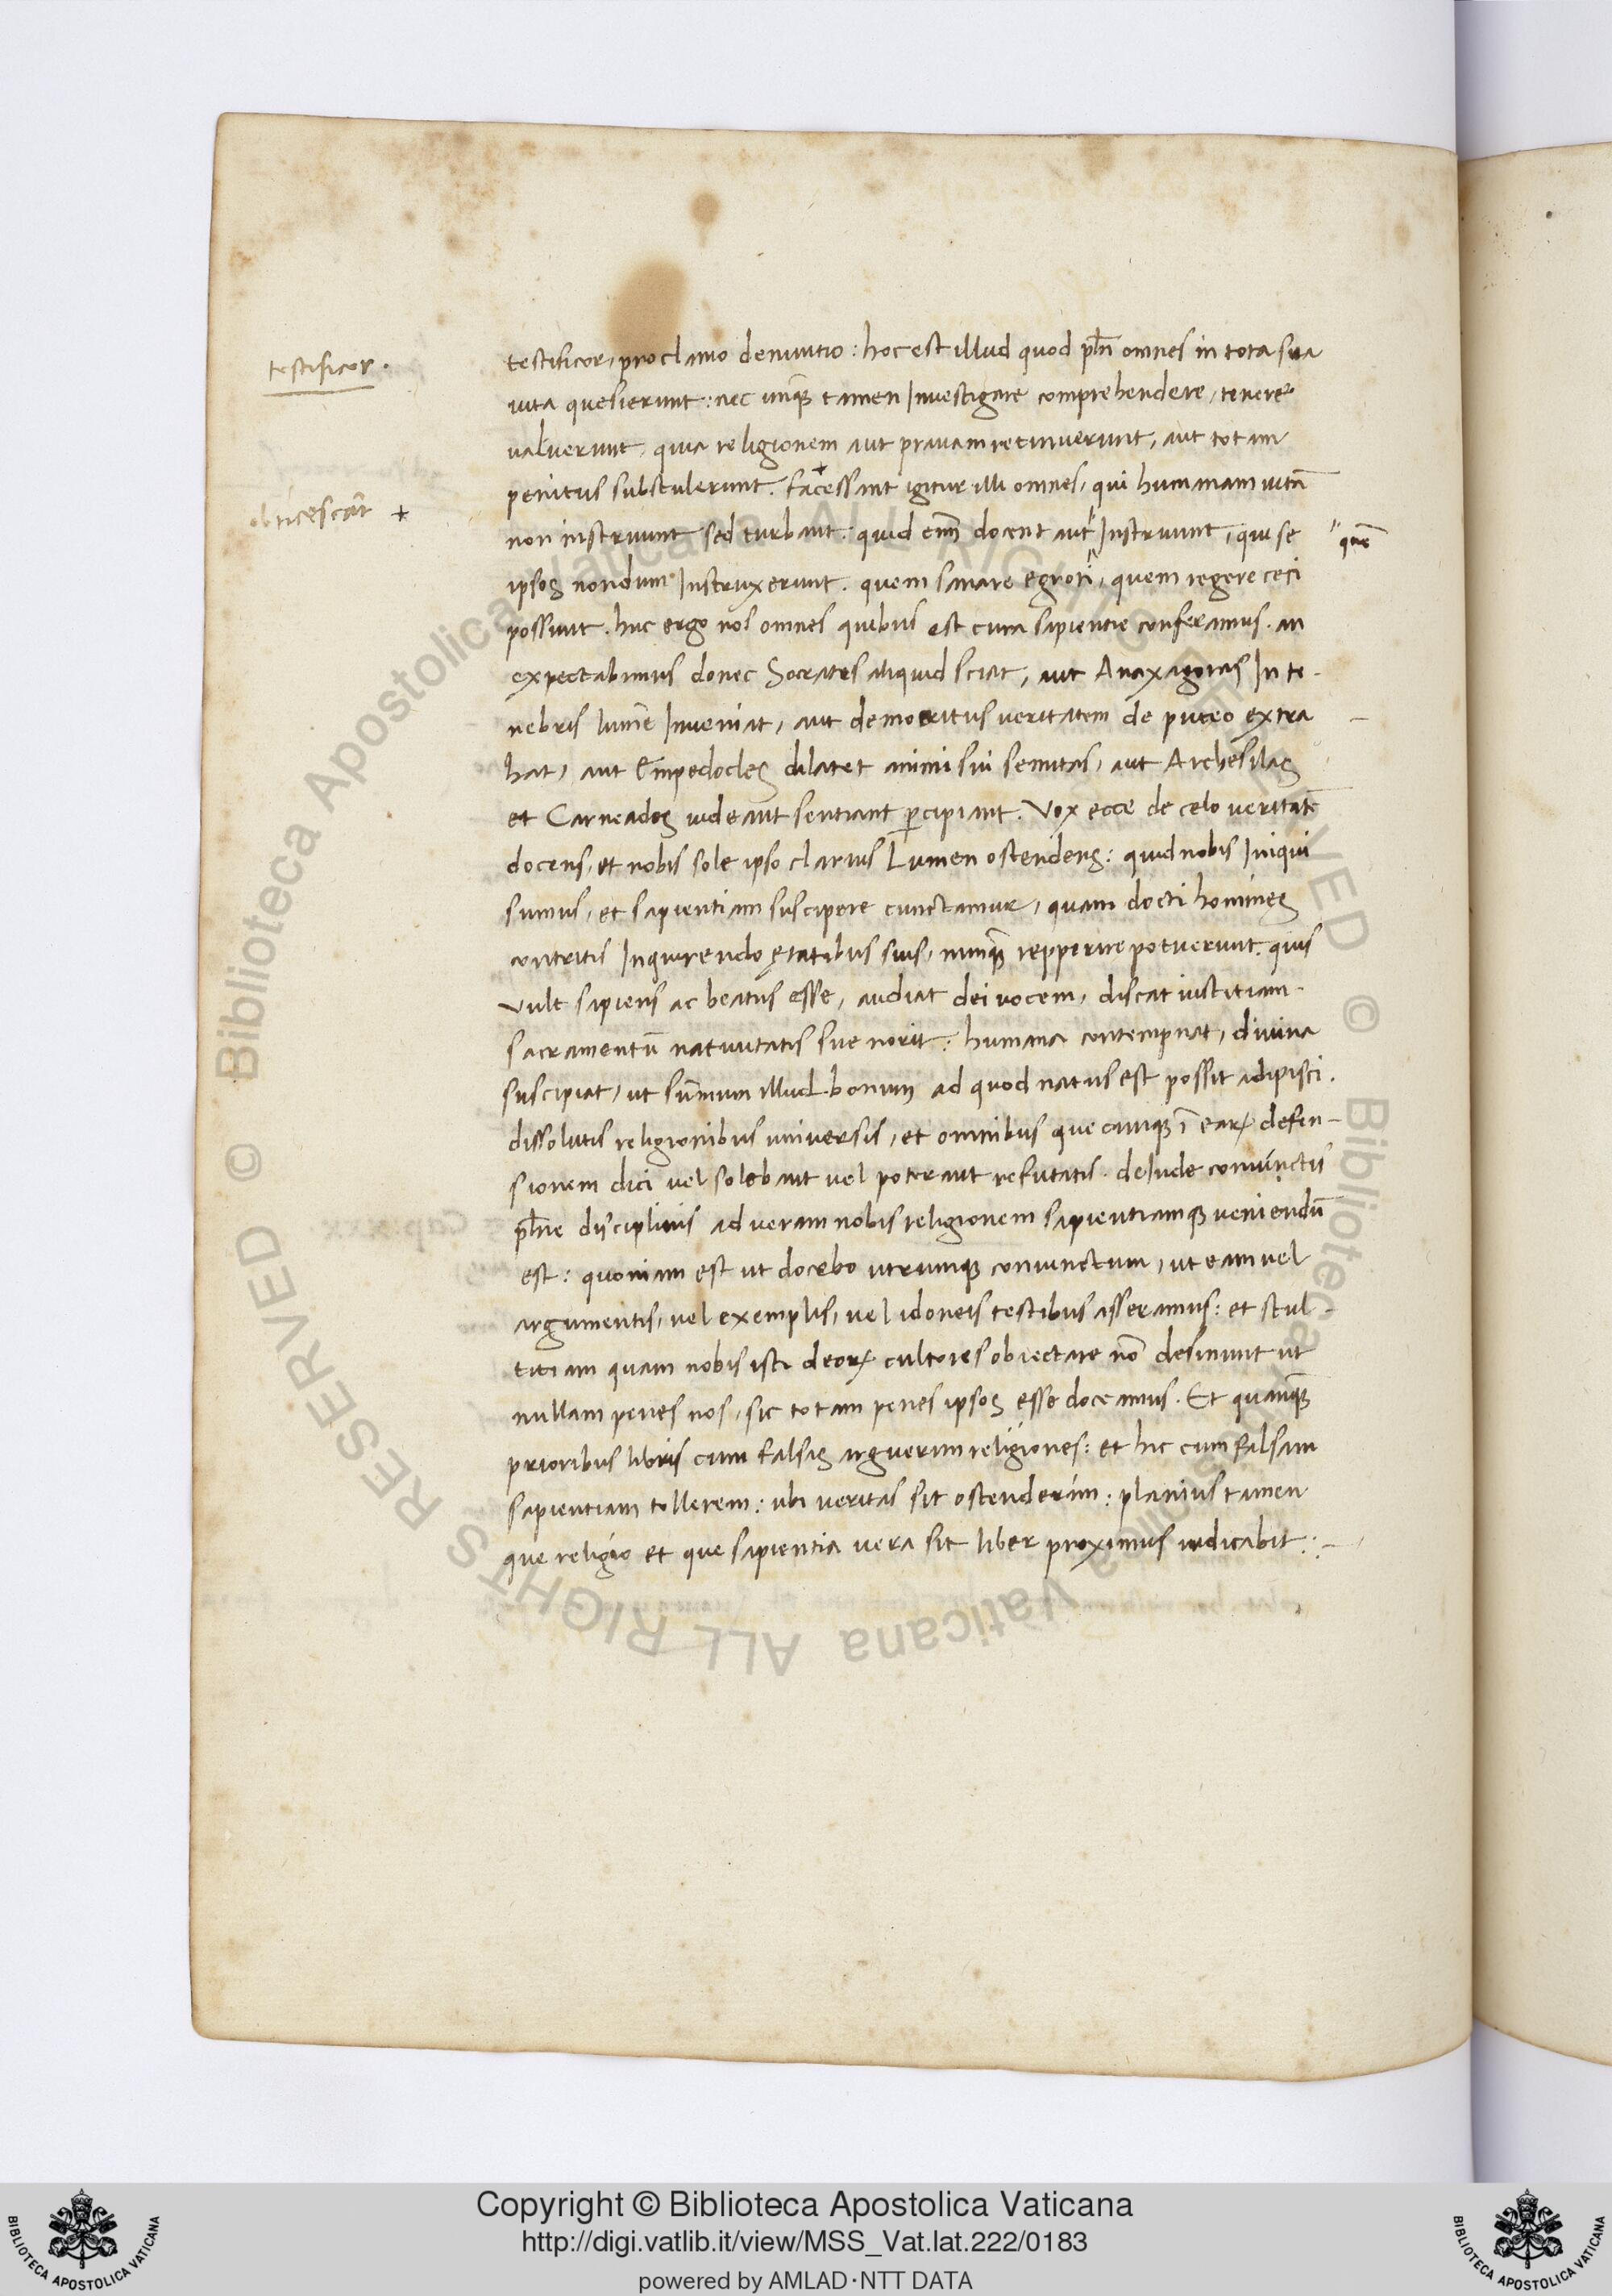 testificor.
testificor, proclamo denuntio: hoc est illud quod ph̄i omnes in tota sua
uita quesierunt: nec unqȝ tamen Inuestigare comprehendere, tenere
valuerunt, quia religionem aut prauam retinuerunt, aut totam
penitus substulerunt. facessant igitur illi omnes, qui humanam uitā
obticescāt +
non instruunt sed turbant. quid enī docent aut" Instruunt, qui se
"quē
ipsos nondum Instruxerunt. quem sanare egroti, quem regere ceci
possunt. huc ergo nos omnes quibus est cura sapientie conferamus. an
expectabimus donec Socrates aliquid sciat, aut Anaxagoras In te-
nebris lumē Inueniat, aut democritus ueritatem de puteo extra
hat, aut Empedocles dilatet animi sui semitas, aut Archesilas
et Carneades uideant sentiant ꝑcipiant. Vox ecce de celo ueritatē
docens, et nobis sole ipso clarius Lumen ostendens: quid nobis Iniqui
sumus, et sapientiam suscipere cunctamur, quam docti homines
contritis Inquirendo ętatibus suis, nunqȝ repperire potuerunt. quis
vult sapiens ac beatus esse, audiat dei uocem, discat iustitiam.
sacramentū natiuitatis sue norit: humana contempnat, diuina
suscipiat, ut sūmum illud bonum ad quod natus est possit adipisci.
dissolutis religionibus uniuersis, et omnibus que cunqȝ ī earꝝ defen-
sionem dici uel solebant uel poterant refutatis. deInde conuictis
ph̄ie disciplinis ad ueram nobis religionem sapientiamqȝ ueniendū
est: quoniam est ut docebo utrumqȝ coniunctum, ut eam uel
argumentis, uel exemplis, uel idoneis testibus asseramus: et stul-
titiam quam nobis isti deorꝝ cultores obiectare nō desinunt ut
nullam penes nos, sic totam penes ipsos esse doceamus. Et quanqȝ
prioribus libris cum falsas arguerim religiones: et hic cum falsam
sapientiam tollerem: ubi ueritas sit ostenderim: planius tamen
que religio et que sapientia uera sit liber proximus indicabit:
Copyright © Biblioteca Apostolica Vaticana
http://digi.vatlib.it/view/MSS_Vat.lat.222/0183
powered by AMLAD·NTT DATA